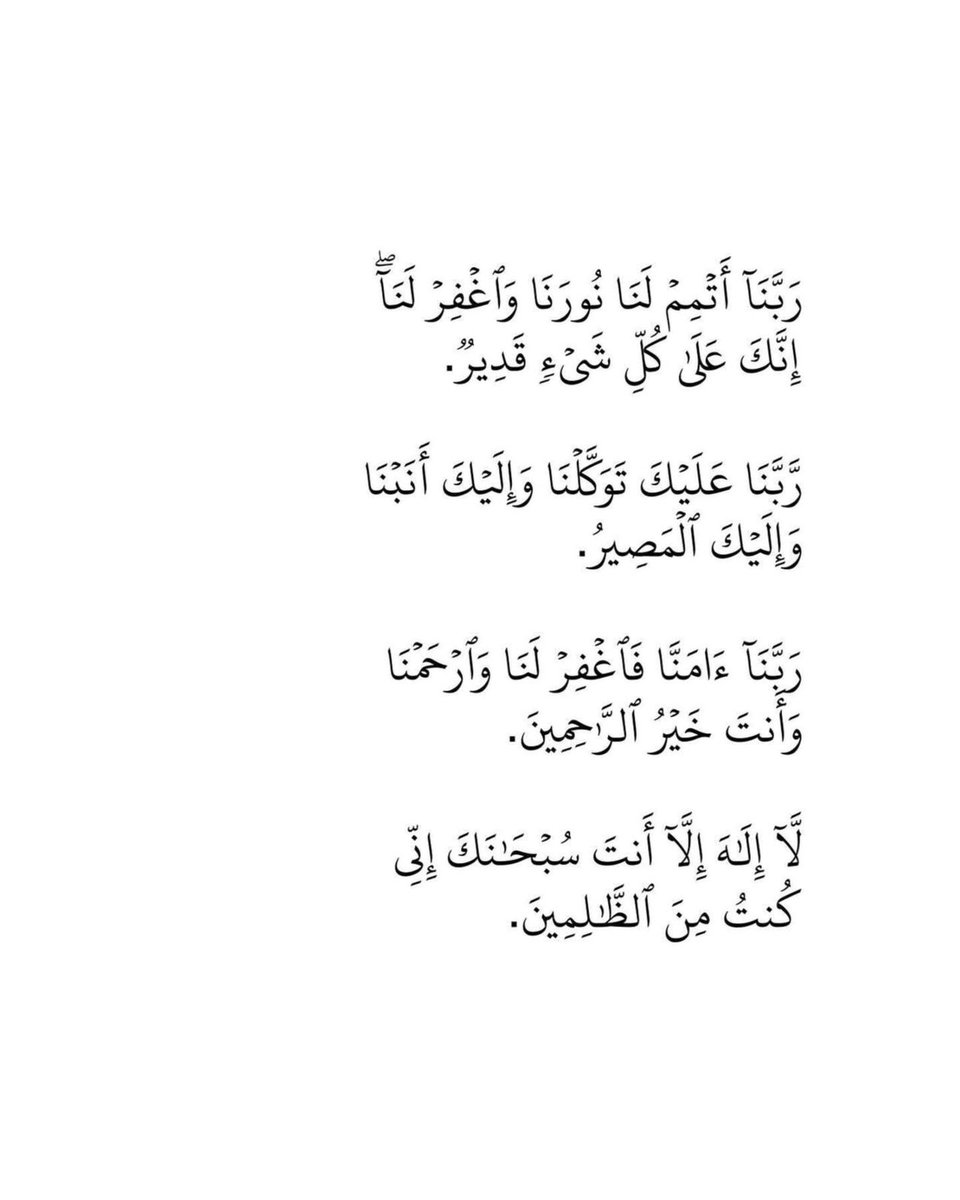 رَبَّنَآ أَتۡمِمۡ لَنَا نُورَنَا وَٱغۡفِرۡ لَنَآۖ
إِنَّكَ عَلَىٰ كُلِّ شَيۡءٖ قَدِيرٞ.
رَّبَّنَا عَلَيۡكَ تَوَكَّلۡنَا وَإِلَيۡكَ أَنَبۡنَا
وَإِلَيۡكَ ٱلۡمَصِيرُ.
رَبَّنَآ ءَامَنَّا فَٱغۡفِرۡ لَنَا وَٱرۡحَمۡنَا
وَأَنتَ خَيۡرُ ٱلرَّٰحِمِينَ.
لَّآ إِلَٰهَ إِلَّآ أَنتَ سُبۡحَٰنَكَ إِنِّي
كُنتُ مِنَ ٱلظَّٰلِمِينَ.